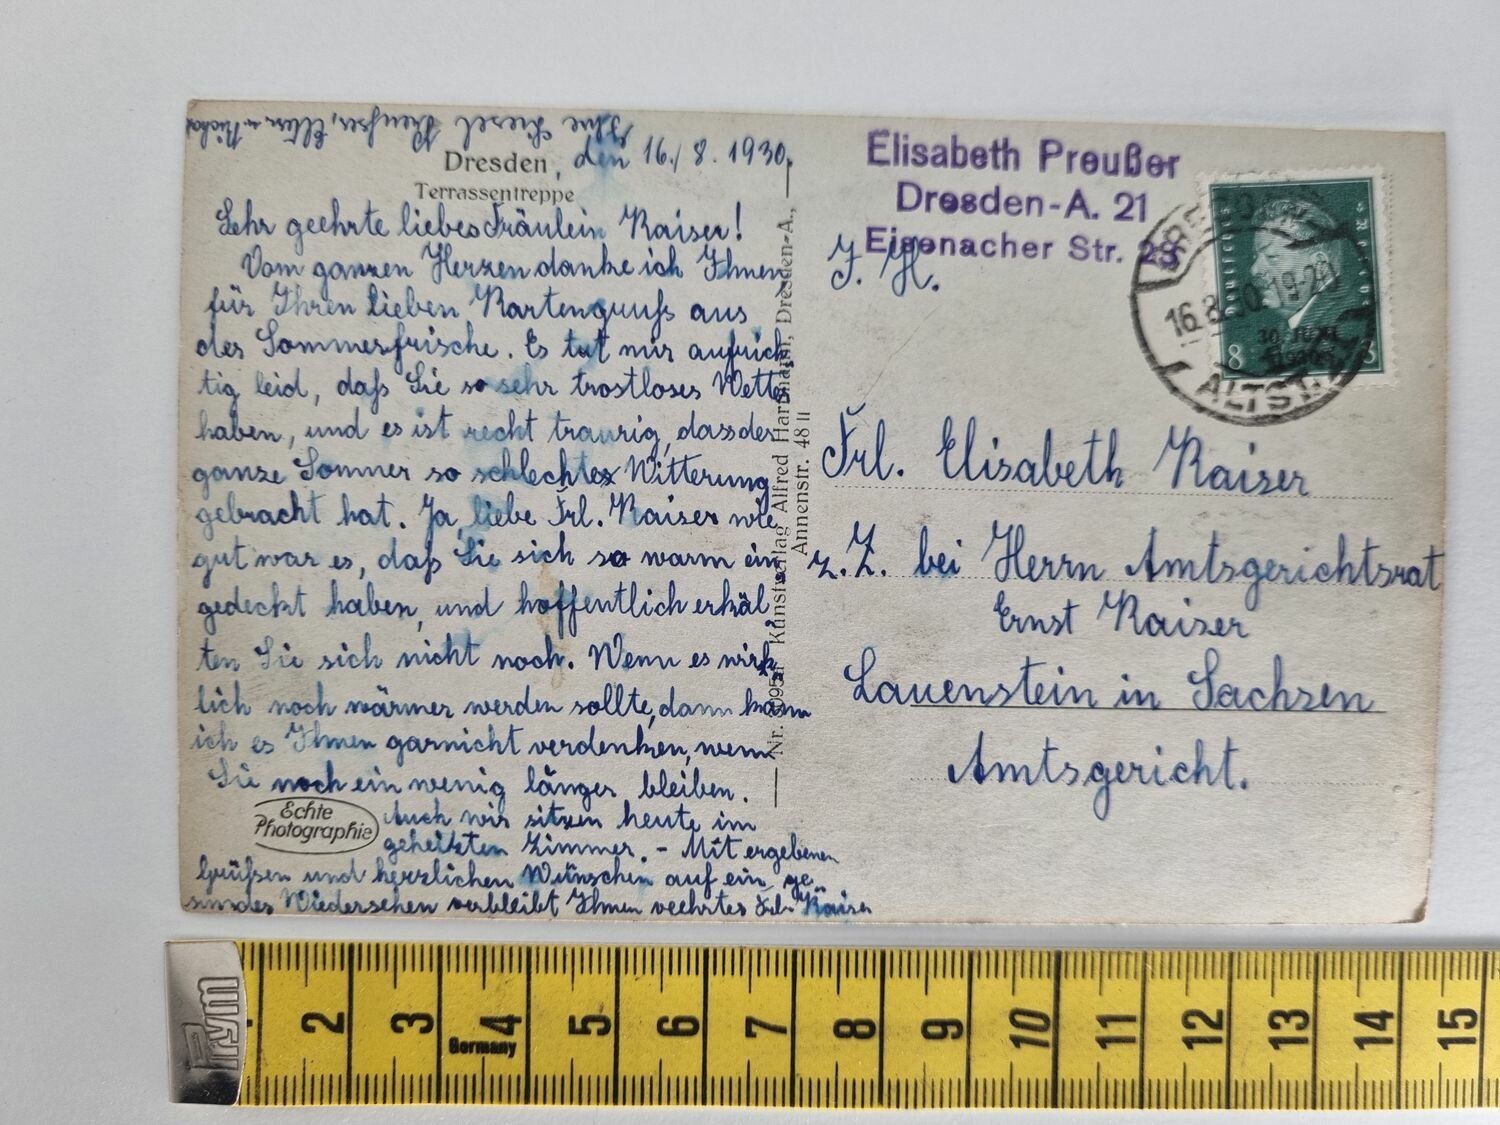 Ihre Liesel Preußer, Eltern u. Richard
Dresden, den 16./8. 1930.
Terrassentreppe
Sehr geehrte liebes Fräulein Kaiser!
Vom ganzen Herzen danke ich Ihnen
für Ihren lieben Kartengruß aus
der Sommerfrische. Es tut mir aufrich
tig leid, daß Sie so sehr trostloses Wetter
haben, und es ist recht traurig, dass der
ganze Sommer so schlechtes Witterung
gebracht hat. Ja, liebe Frl. Kaiser wie
gut war es, daß Sie sich so warm ein
gedeckt haben, und hoffentlich erkäl
ten Sie sich nicht noch. Wenn es wirk
lich noch wärmer werden sollte, dann kann
ich es Ihnen garnicht verdenken, wenn
Sie noch ein wenig länger bleiben.
Auch wir sitzen heute im
geheitzten Zimmer. – Mit ergebenen
Grüßen und herzlichen Wünschen auf ein ge
sundes Wiedersehen verbleibt Ihnen veehrtes Frl. Kaiser
Echte
Photographie
Kunstverlag Alfred Hartmann, Dresden-A.,
Annenstr. 48 II
Elisabeth Preußer
Dresden-A. 21
Eisenacher Str. 28
I. H.
DEUTSCHES REICH
8 8
30. JUNI
1930
DRESDEN
16.8.30.19-20
ALTST.
Frl. Elisabeth Kaiser
z. Z. bei Herrn Amtsgerichtsrat
Ernst Kaiser
Lauenstein in Sachsen
Amtsgericht.
Prym
2 3 4 5 6 7 8 9 10 11 12 13 14 15
Germany